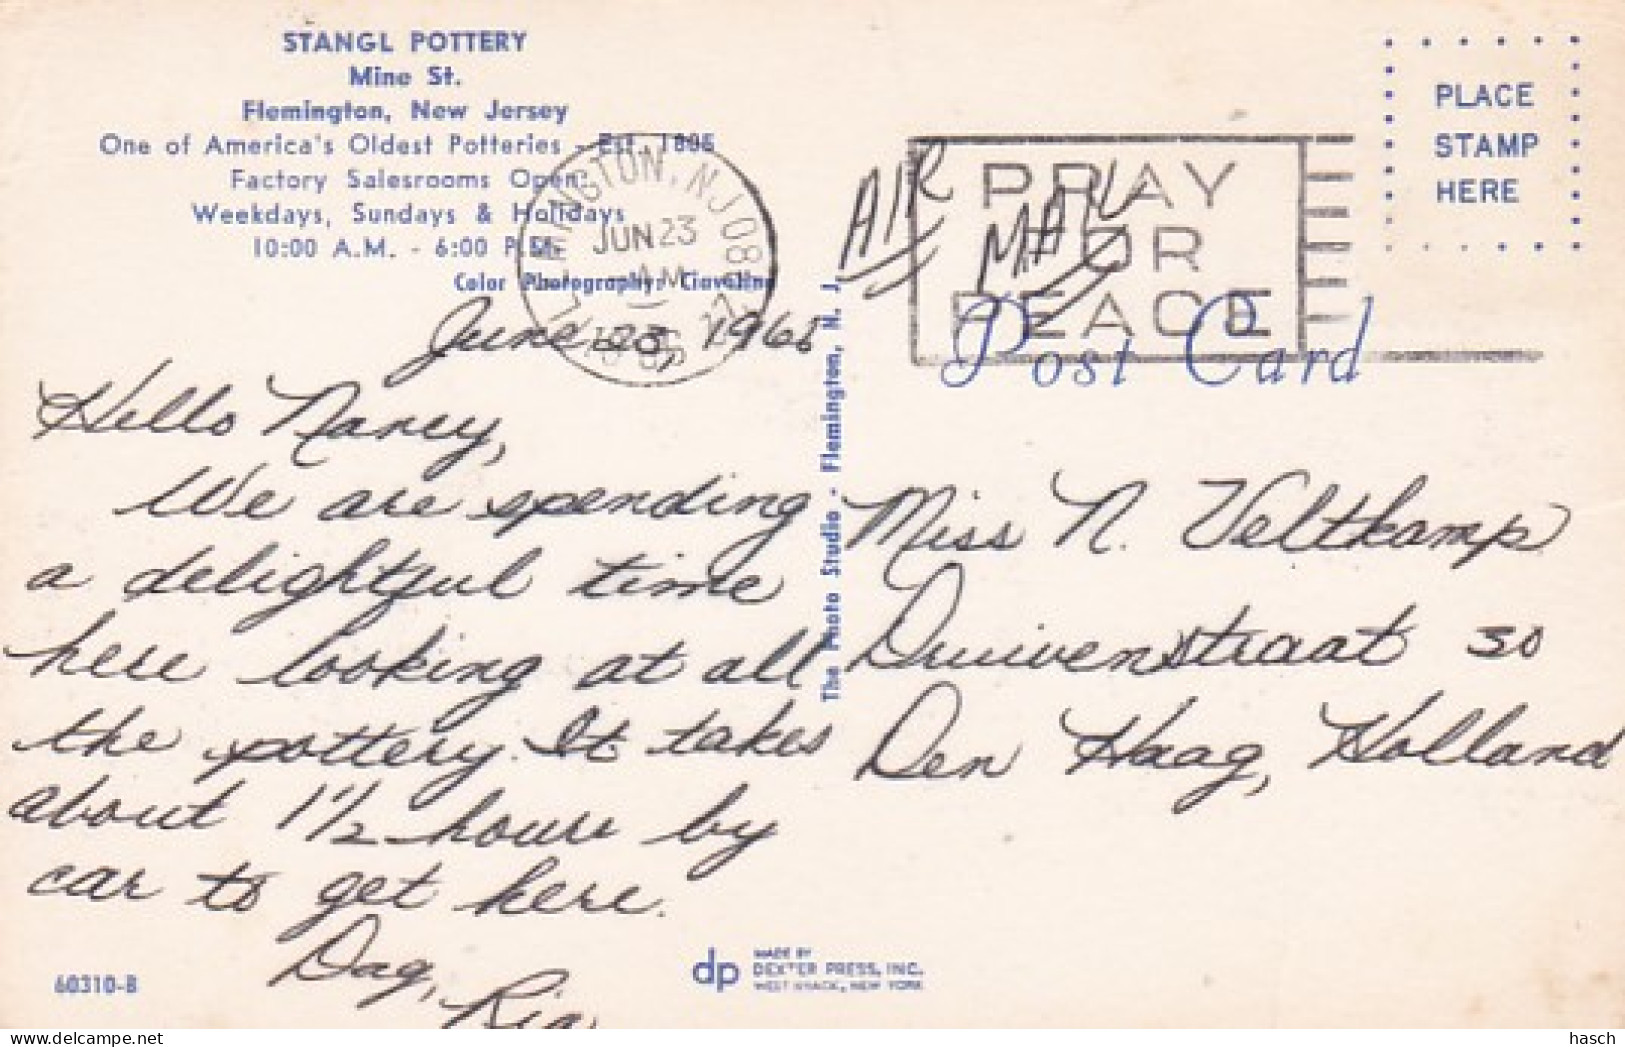 STANGL POTTERY
Mine St.
Flemington, New Jersey
One of America's Oldest Potteries - Est. 1805
Factory Salesrooms Open:
Weekdays, Sundays & Holidays
10:00 A.M. - 6:00 P.M.
Color Photography: Ciavolino
FLEMINGTON, N.J. 08
JUN 23
AM
AIR
MAIL
PRAY
FOR
PEACE
PLACE
STAMP
HERE
Post Card
June 23, 1966
Hello Nancy,
We are spending
a delightful time
here looking at all
the pottery. It takes
about 1 1/2 hours by
car to get here.
Dag,
Ria
The Photo Studio - Flemington, N. J.
Miss N. Veltkamp
Duivenstraat 30
Den Haag, Holland
60310-B
dp
MADE BY
DEXTER PRESS, INC.
WEST NYACK, NEW YORK
hasch